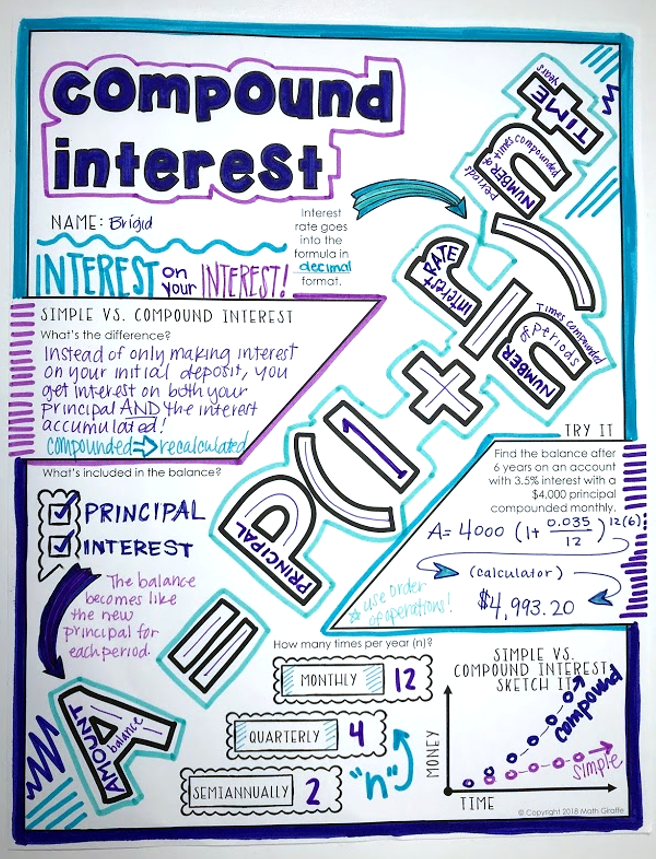 compound
interest
NAME: Brigid
INTEREST on your INTEREST!
Interest
rate goes
into the
formula in
decimal
format.
SIMPLE VS. COMPOUND INTEREST
What's the difference?
Instead of only making interest
on your initial deposit, you
get interest on both your
principal AND the interest
accumulated!
compounded⇒recalculated
What's included in the balance?
PRINCIPAL
INTEREST
The balance
becomes like
the new
principal for
each period.
A AMOUNT balance
=
P PRINCIPAL
(1
+
r Interest RATE
n NUMBER of periods Times compounded
)
n NUMBER of times compounded periods
t TIME years
TRY IT
Find the balance after
6 years on an account
with 3.5% interest with a
$4,000 principal
compounded monthly.
A= 4000 (1+ 0.035/12)^12(6)
(calculator)
$4,993.20
use order
of operations!
How many times per year (n)?
MONTHLY 12
QUARTERLY 4
SEMIANNUALLY 2
"n"
SIMPLE VS.
COMPOUND INTEREST
SKETCH IT
MONEY
TIME
compound
simple
© Copyright 2018 Math Giraffe